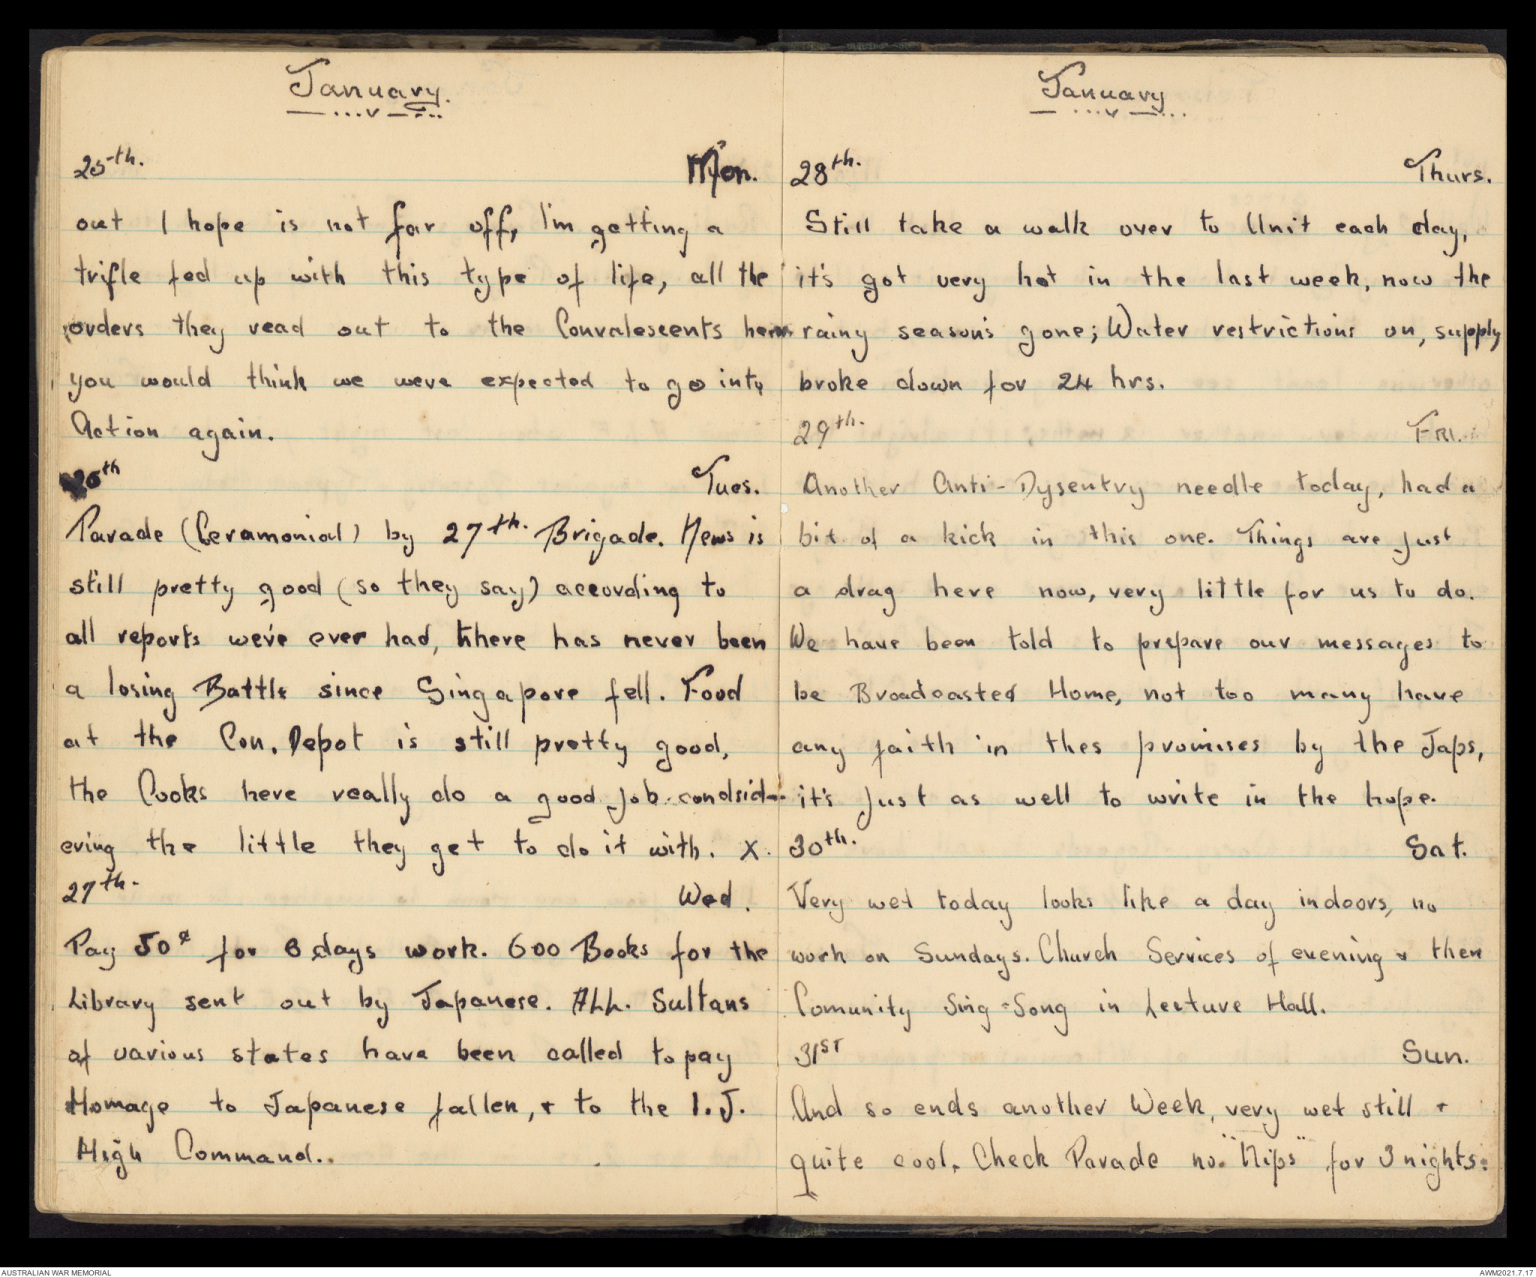 January.
25th. Mon.
out I hope is not far off, I'm getting a
trifle fed up with this type of life, all the
orders they read out to the Convalescents here
you would think we were expected to go into
Action again.
26th Tues.
Parade (Ceramonial) by 27th. Brigade. News is
still pretty good (so they say) according to
all reports we've ever had, there has never been
a losing Battle since Singapore fell. Food
at the Con. Depot is still pretty good,
the Cooks here really do a good job condsid-
ering the little they get to do it with. X.
27th. Wed.
Pay 50¢ for 6 days work. 600 Books for the
Library sent out by Japanese. ALL. Sultans
of various states have been called to pay
Homage to Japanese fallen, & to the I.J.
High Command..
January
28th. Thurs.
Still take a walk over to Unit each day,
it's got very hot in the last week, now the
rainy season's gone; Water restrictions on, supply
broke down for 24 hrs.
29th. FRI.
Another Anti-Dysentry needle today, had a
bit of a kick in this one. Things are Just
a drag here now, very little for us to do.
We have been told to prepare our messages to
be Broadcasted Home, not too many have
any faith in thes promises by the Japs,
it's Just as well to write in the hope.
30th. Sat.
Very wet today looks like a day indoors, no
work on Sundays. Church Services of evening & then
Comunity Sing-Song in Lecture Hall.
31ST Sun.
And so ends another Week, very wet still &
quite cool. Check Parade no. "Nips" for 3 nights:
AUSTRALIAN WAR MEMORIAL
AWM2021.7.17